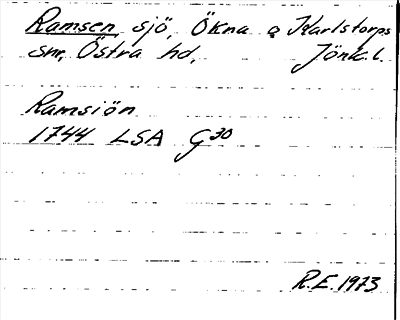 Ramsen sjö, Ökna o Karlstorps
snr, Östra hd, Jönk. l.
Ramsiön
1744 LSA G30
R.E. 1973